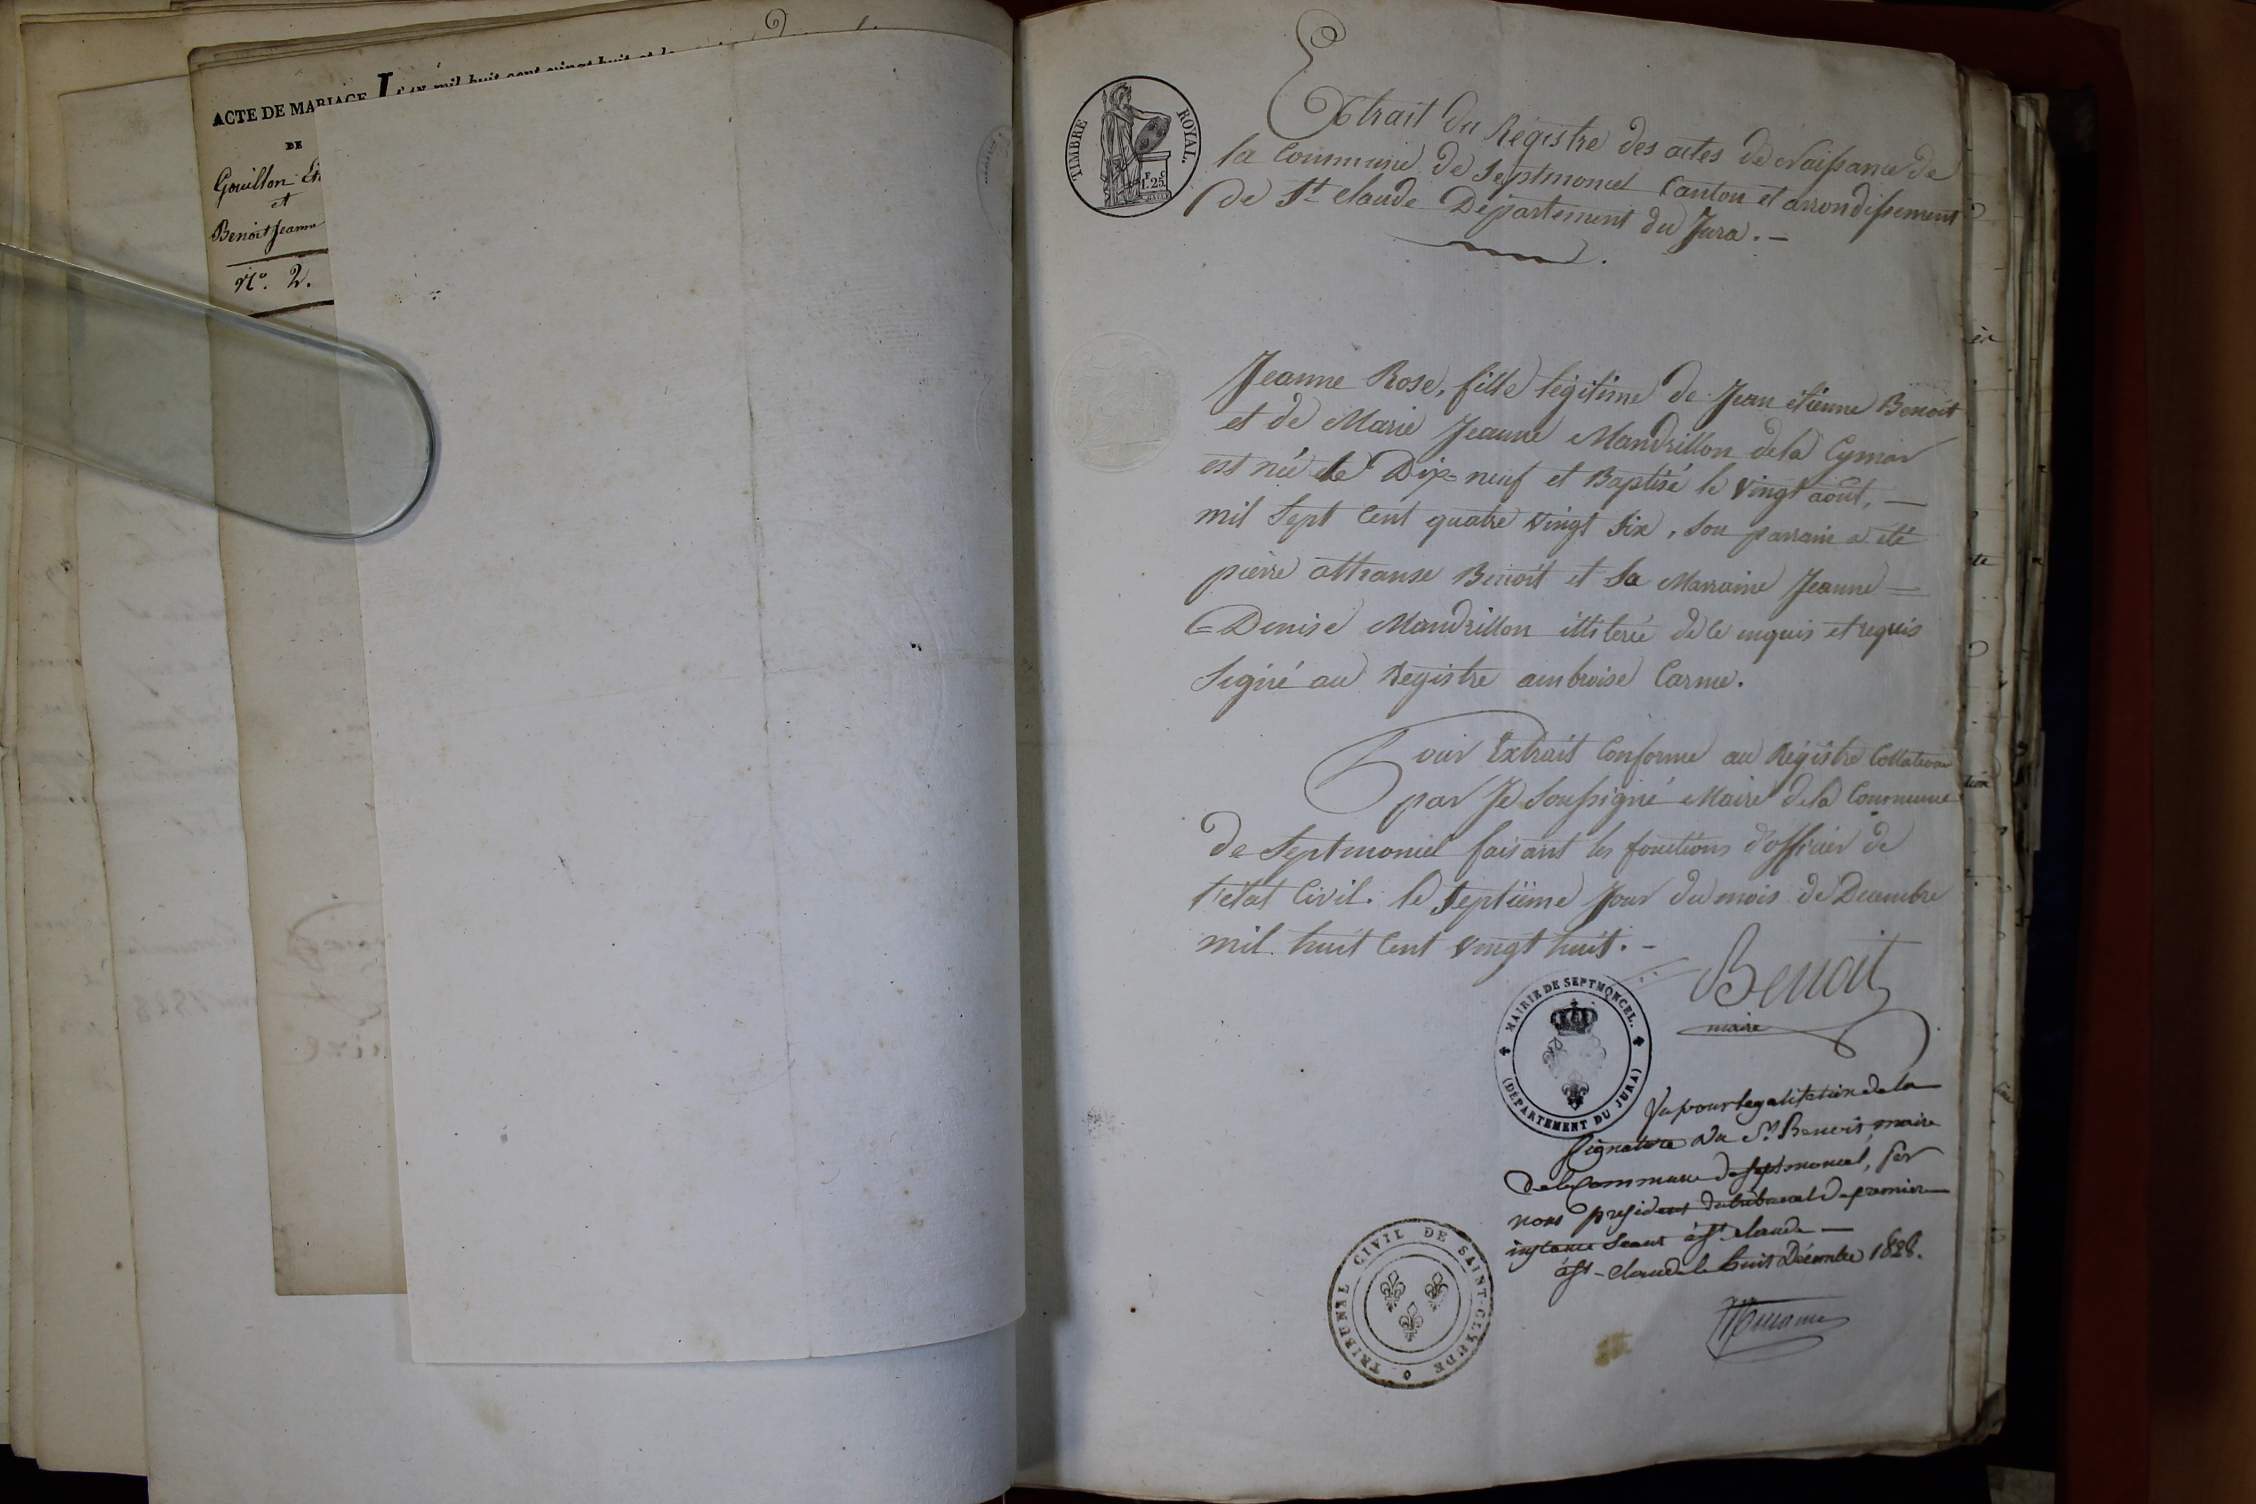 ACTE DE MARIAGE
DE
Gouillon
et
Benoit Jeanne
N.º 2.
L'an mil huit cent vingt huit
TIMBRE ROYAL.
1.25
Extrait du Registre des actes de Naissance de
la Commune de Septmoncel Canton et arrondissement
de St Claude Département du Jura. -
Jeanne Rose, fille légitime de Jean étienne Benoit
et de Marie Jeanne Mandrillon dela Cymar
est née le Dix-neuf et Baptisé le vingt août, -
mil Sept Cent quatre vingt Six, Son parrain a été
pierre Benoit et Sa Marraine Jeanne -
Denise Mandrillon illiterée de ce enquis et requis
Signé au Registre ambroise Carme.
Pour Extrait Conforme au Régistre
par Je Soussigné Maire dela Commune
de Septmoncel faisant les fonctions d'officier de
l'état Civil. le Septième Jour du mois de Decembre
mil huit Cent vingt huit. -
Benoit
maire
MAIRIE DE SEPTMONCEL.
(DEPARTEMENT DU JURA)
Vu pour legalisation de la
signature du Sr Benoit, maire
de la Commune de Septmoncel, par
nous president du tribunal de premiere
instance seant à St. claude -
à St - Claude le huit Décembre 1828.
TRIBUNAL CIVIL DE SAINT-CLAUDE